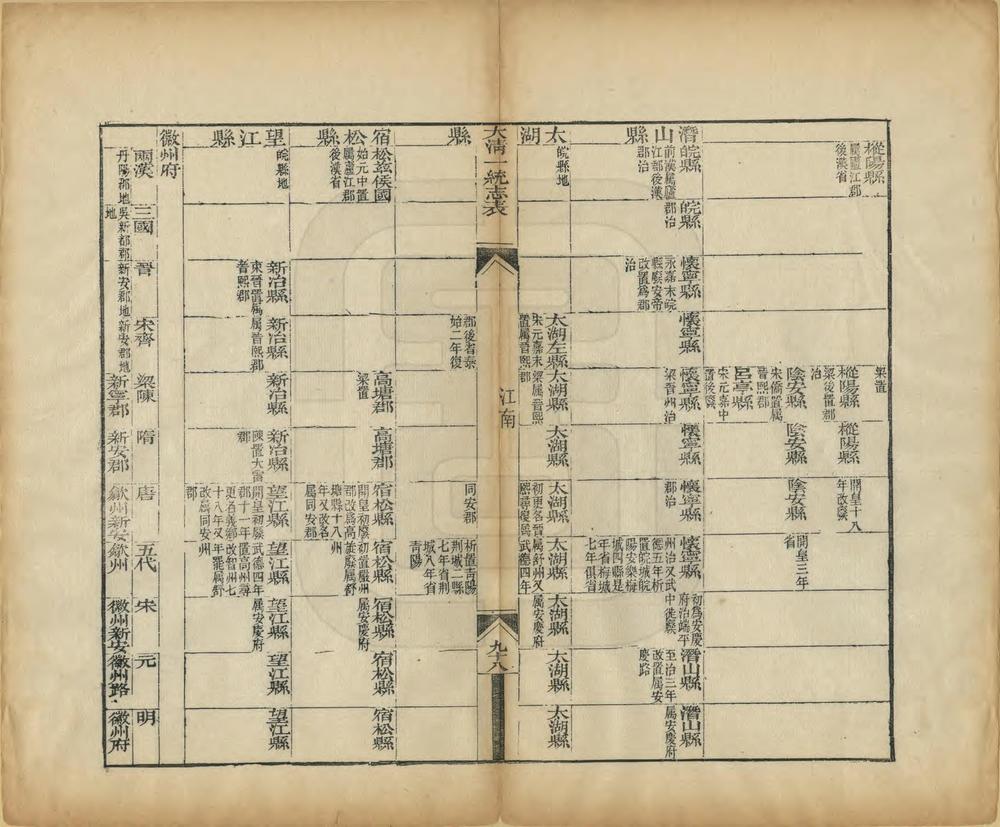 樅陽縣
屬廬江郡
後漢省
梁置
樅陽縣
梁後置郡
治
樅陽縣
開皇十八
年改廢
陰安縣
宋僑置屬
晉熙郡
呂亭縣
宋元嘉中
置後廢
陰安縣
陰安縣
開皇三年
省
潛山縣
皖縣
前漢屬廬
江郡後漢
郡治
皖縣
郡治
懷寧縣
永嘉末皖
縣廢安帝
改置為郡
治
懷寧縣
懷寧縣
梁晉州治
懷寧縣
懷寧縣
郡治
懷寧縣
州治又武
德五年析
置皖城皖
陽安樂梅
城四縣是
年省梅城
七年俱省
初為安慶
府治端平
中徙廢
潛山縣
至治三年
改置屬安
慶路
潛山縣
屬安慶府
太湖縣
皖縣地
太湖左縣
宋元嘉末
置屬晉熙
郡
太湖縣
梁屬晉熙
太湖縣
太湖縣
初更名晉
熙尋復屬
太湖縣
屬舒州又
武德四年
太湖縣
屬安慶府
太湖縣
太湖縣
大清一統志表
江南
九十八
郡後省泰
始二年復
同安郡
析置青陽
荊城二縣
七年省荊
城八年省
青陽
宿松縣
松茲侯國
始元中置
屬廬江郡
後漢省
高塘郡
梁置
高塘郡
宿松縣
開皇初廢
郡改為高
塘縣十八
年又改名
屬同安郡
宿松縣
初置嚴州
並廢屬舒
州
宿松縣
屬安慶府
宿松縣
宿松縣
望江縣
皖縣地
新冶縣
東晉置屬
晉熙郡
新冶縣
屬晉熙郡
新冶縣
新冶縣
陳置大雷
郡
望江縣
開皇初廢
郡十一年
更名義鄉
十八年又
改屬同安
郡
望江縣
武德四年
置高州尋
改智州七
年罷屬舒
州
望江縣
屬安慶府
望江縣
望江縣
徽州府
兩漢
三國
晉
宋齊
梁陳
隋
唐
五代
宋
元
明
丹陽郡地
吳新都郡
地
新安郡地
新安郡地
新寧郡
新安郡
歙州新安
歙州
徽州新安
徽州路
徽州府